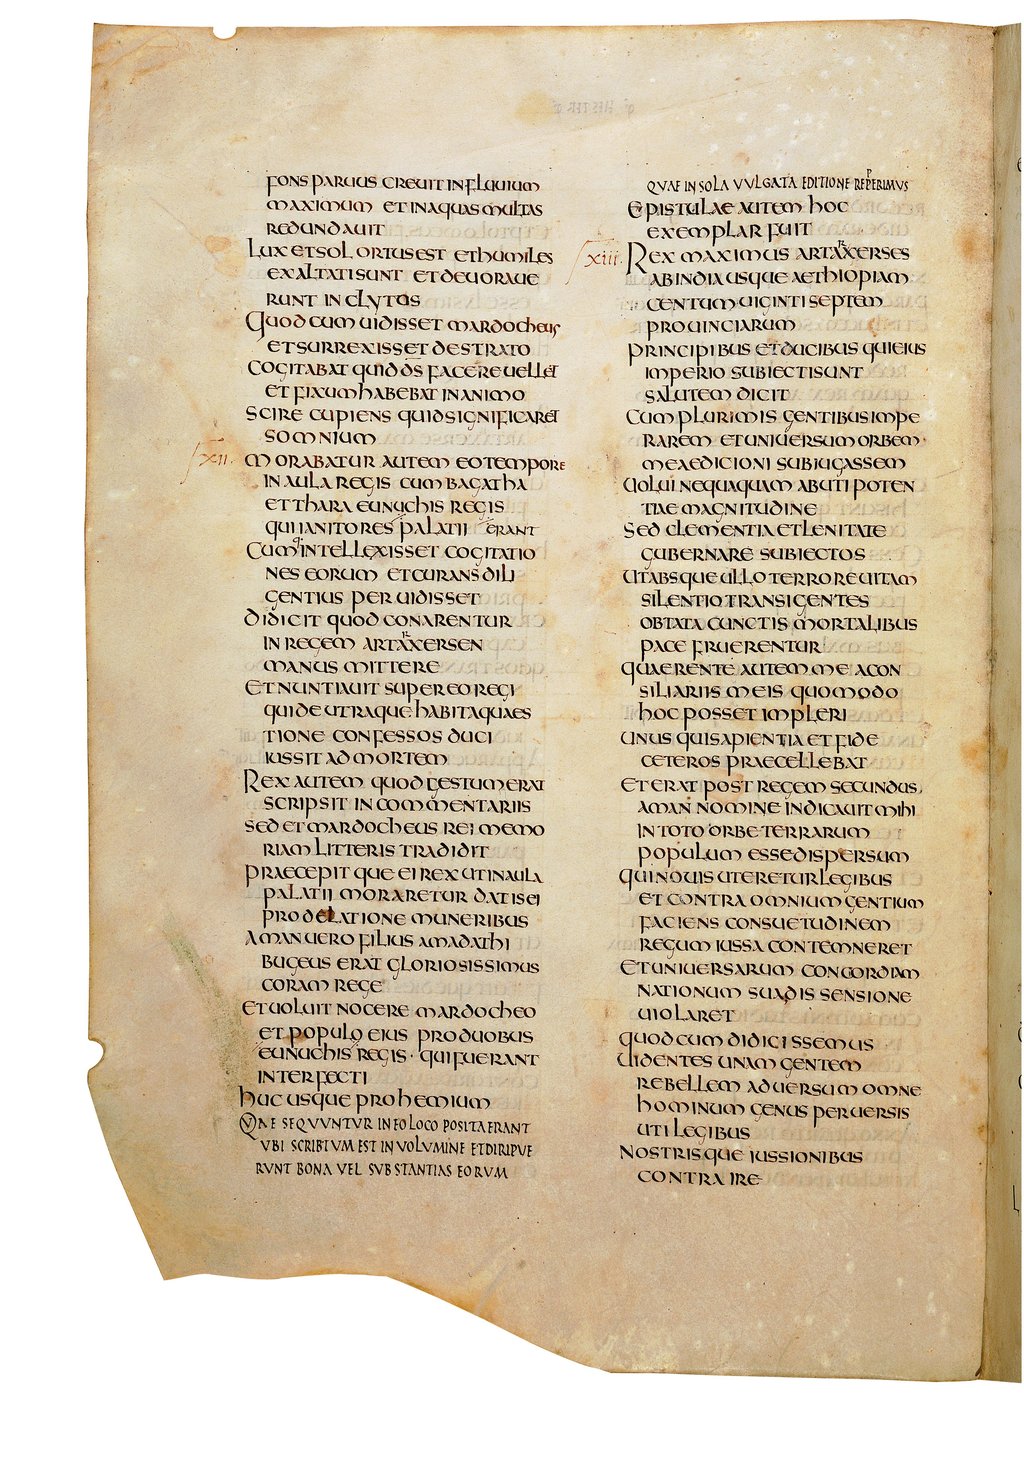 HESTER
fons paruus creuit in fluuium
maximum et in aquas multas
redundauit
Lux et sol ortus est et humiles
exaltati sunt et deuoraue
runt inclytos
Quod cum uidisset mardocheus
et surrexisset de strato
Cogitabat quid ds facere uellet
et fixum habebat in animo
scire cupiens quid significaret
somnium
xii. Morabatur autem eo tempore
in aula regis cum bagatha
et thara eunuchis regis
qui ianitores palatii erant
Cumq intellexisset cogitatio
nes eorum et curans dili
gentius peruidisset
didicit quod conarentur
in regem artarxersen
manus mittere
et nuntiauit super eo regi
qui de utraque habita quaes
tione confessos duci
iussit ad mortem
Rex autem quod gestum erat
scripsit in commentariis
sed et mardocheus rei memo
riam litteris tradidit
praecepitque ei rex ut in aula
palatii moraretur datis ei
pro delatione muneribus
Aman uero filius amadathi
bugeus erat gloriosissimus
coram rege
et uoluit nocere mardocheo
et populo eius pro duobus
eunuchis regis · qui fuerant
interfecti
huc usque prohemium
QUAE SEQUUNTUR IN EO LOCO POSITA ERANT
UBI SCRIBTUM EST IN UOLUMINE ET DIRIPUE
RUNT BONA UEL SUBSTANTIAS EORUM
QUAE IN SOLA UULGATA EDITIONE REPPERIMUS
Epistulae autem hoc
exemplar fuit
xiii. Rex maximus artarxerses
ab india usque aethiopiam
centum uiginti septem
prouinciarum
principibus et ducibus qui eius
imperio subiecti sunt
salutem dicit
Cum plurimis gentibus impe
rarem et uniuersum orbem
meae dicioni subiugassem
uolui nequaquam abuti poten
tiae magnitudine
sed clementia et lenitate
gubernare subiectos
ut absque ullo terrore uitam
silentio transigentes
obtata cunctis mortalibus
pace fruerentur
quaerente autem me a con
siliariis meis quomodo
hoc posset impleri
unus qui sapientia et fide
ceteros praecellebat
et erat post regem secundus,
aman nomine indicauit mihi
in toto orbe terrarum
populum esse dispersum
qui nouis uteretur legibus
et contra omnium gentium
faciens consuetudinem
regum iussa contemneret
et uniuersarum concordiam
nationum sua dissensione
uiolaret
quod cum didicissemus
uidentes unam gentem
rebellem aduersum omne
hominum genus peruersis
uti legibus
nostrisque iussionibus
contraire